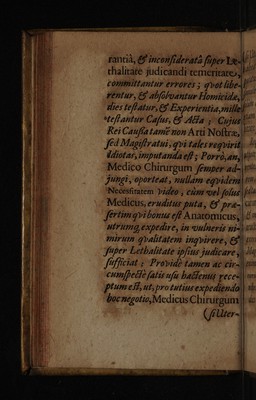 rantiâ, & inconsideratâ super Le-
thalitate judicandi temeritate,
committantur errores; qvot libe-
rentur, & absolvantur Homicidæ,
dies testatur, & Experientia, mille
testantur Casus, & Acta; Cujus
Rei Causa tamẽ non Arti Nostræ,
sed Magistratui, qvi tales reqvirit
Idiotas, imputanda est; Porrò, an,
Medico Chirurgum semper ad-
jungi, oporteat, nullam eqvidem
Necessitatem video, cùm vel solus
Medicus, eruditus puta, & præ-
sertim qvi bonus est Anatomicus,
utrumq; expedire, in vulneris ni-
mirum qvalitatem inqvirere, &
super Lethalitate ipsius judicare,
sufficiat: Providè tamen ac cir-
cumspectè satis usu hactenus rece-
ptum est, ut, pro tutius expediendo
hoc negotio, Medicus Chirurgum
(si uter-